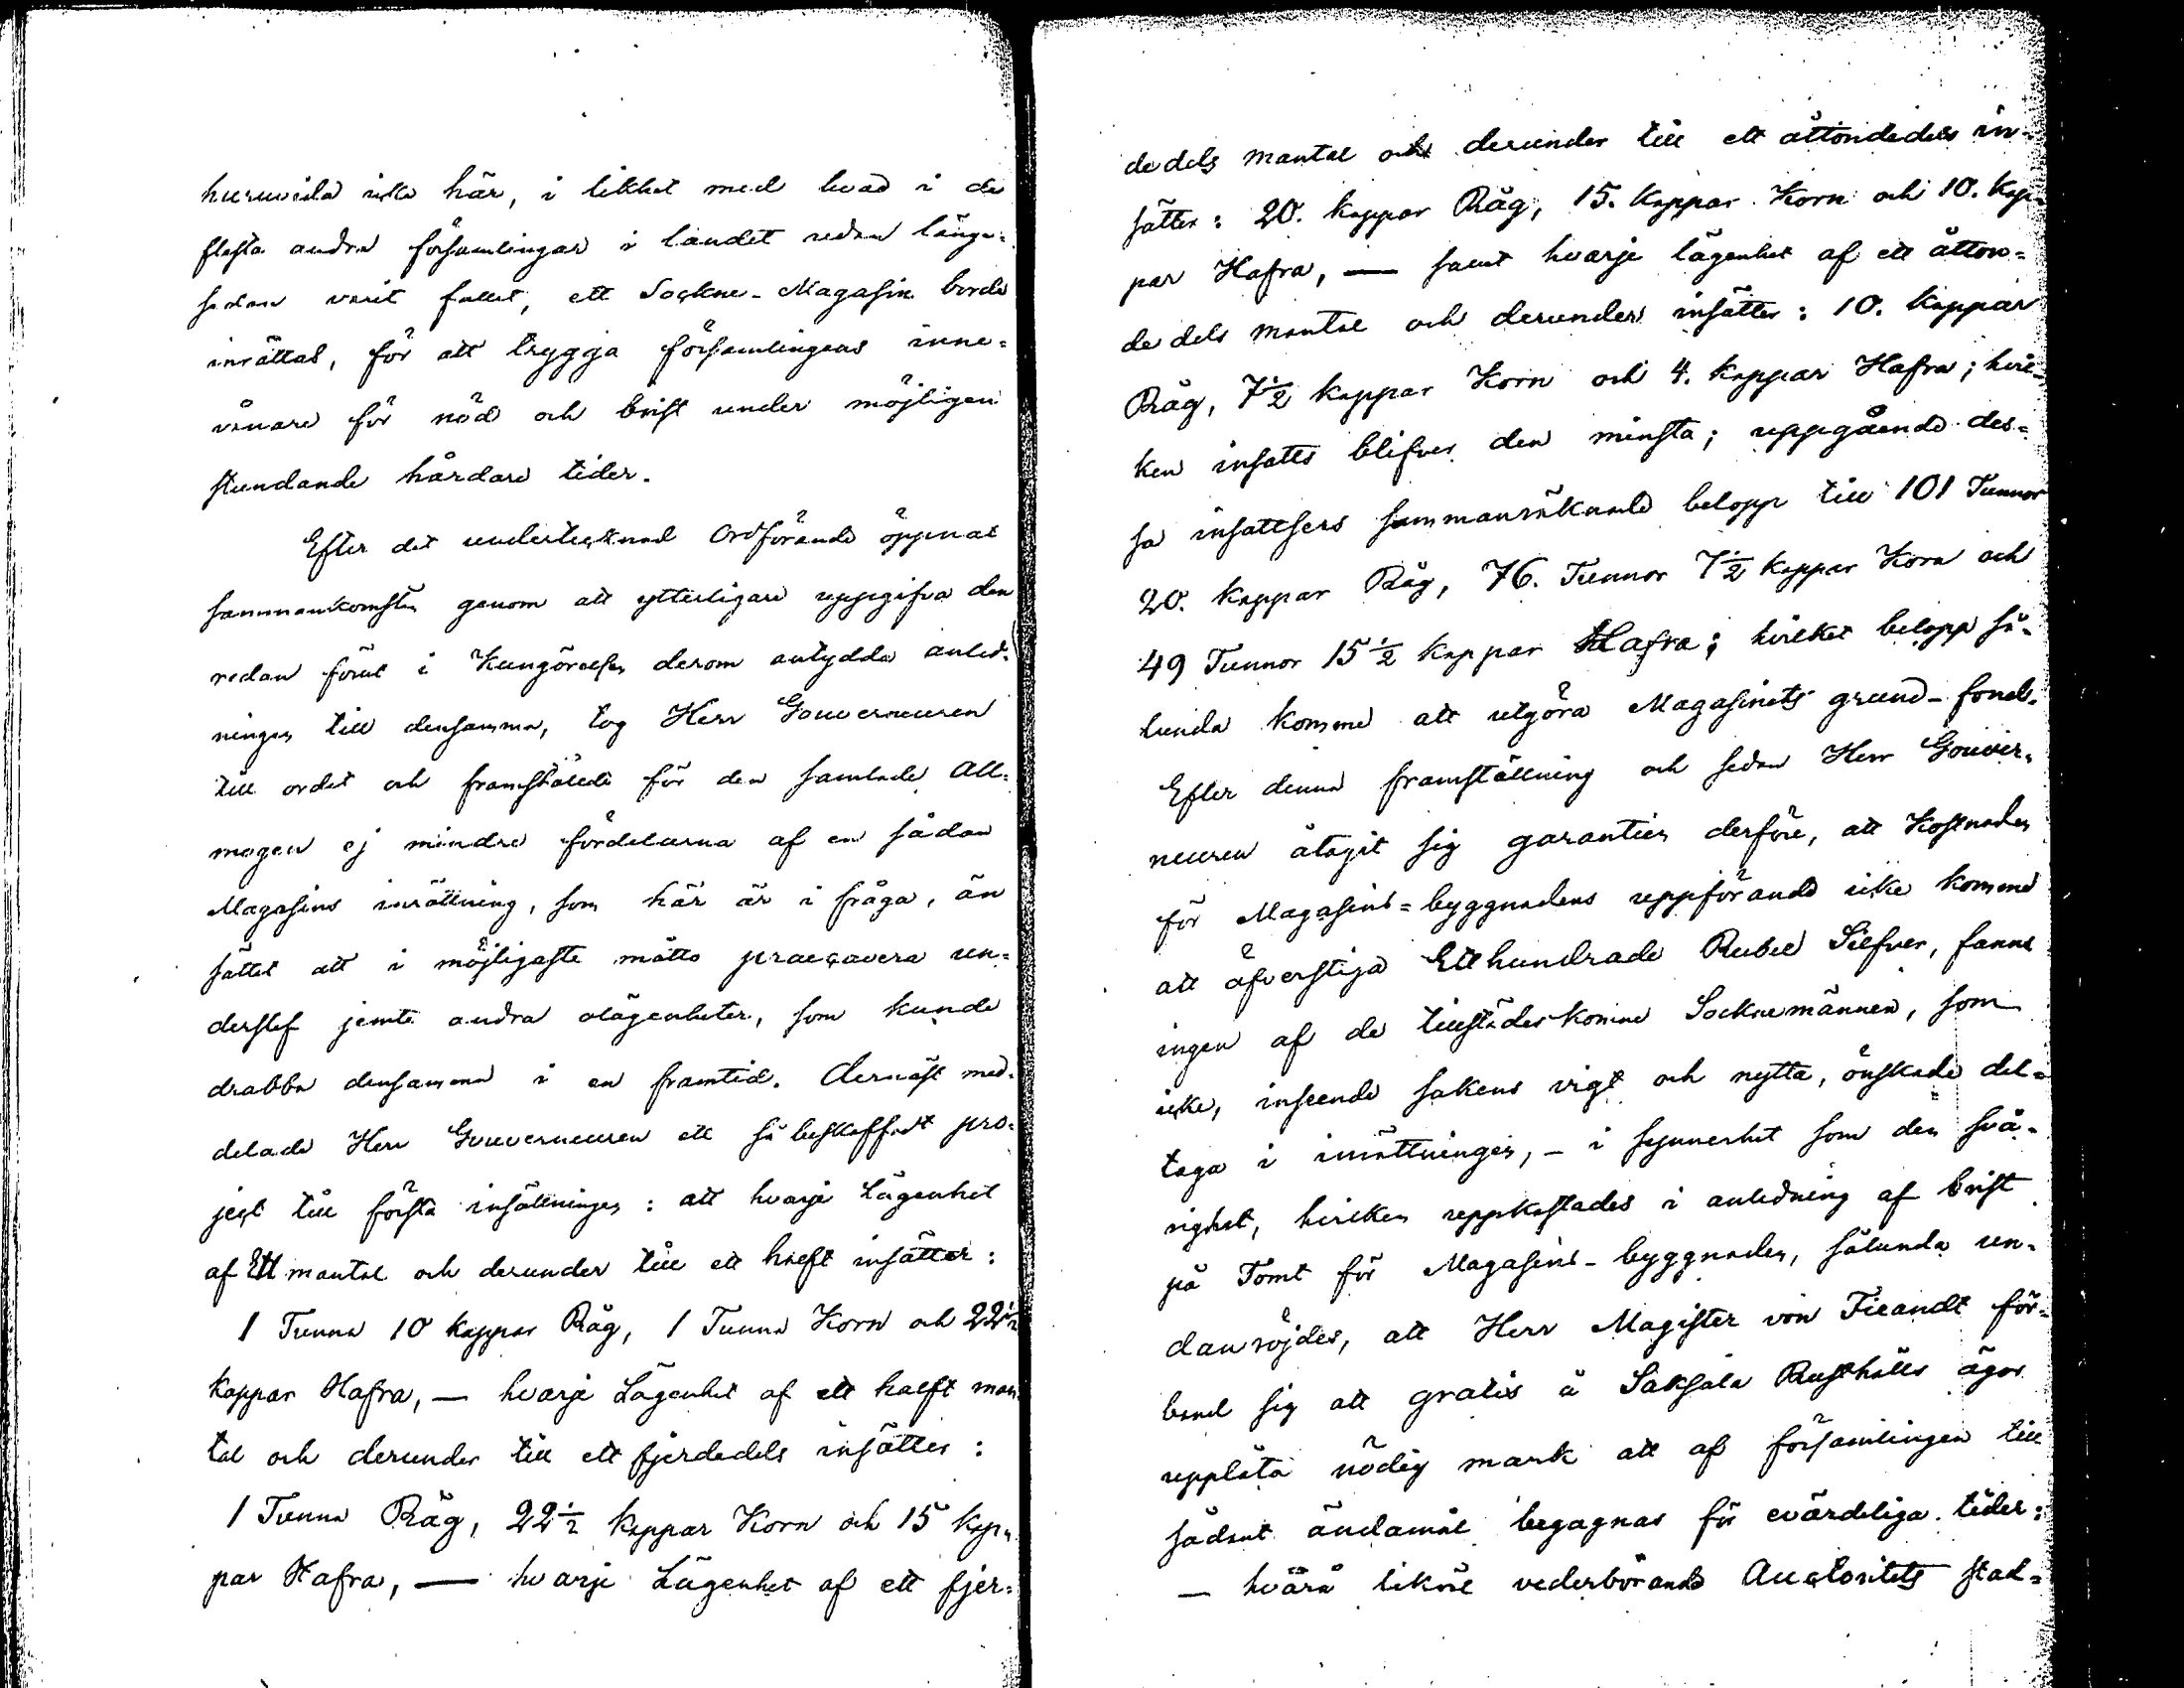 huruvida icke här, i likhet med hvad i de
flesta andra församlingar i landet redan länge=
sedan varit fallet, ett Sockne-Magasin borde
inrättas, för att trygga församlingens inne=
vånare för nöd och brist under möjligen
stundande hårdare tider.
Efter det undertecknad Ordförande öppnat
sammankomsten genom att ytterligare uppgifva den
redan förut i Kungörelsen derom antydda anled=
ningen till densamma, tog Herr Gouverneuren
till ordet och framstälde för den samlade All=
mogen ej mindre fördelarna af en sådan
Magasins inrättning, som här är i fråga, än
sättet att i möjligaste måtto præcavera un=
derslef jemte andra olägenheter, som kunde
drabba densamma i en framtid. Dernäst med=
delade Herr Gouverneuren ett så beskaffadt pro=
ject till första insättningen: att hvarje Lägenhet
af Ett mantal och derunder till ett halft insätter:
1 Tunna 10 kappar Råg, 1 Tunna Korn och 22½
kappar Hafra, — hvarje Lägenhet af ett halft man
tal och derunder till ett fjerdedels insätter:
1 Tunna Råg, 22½ kappar Korn och 15 kap=
par Hafra, — hvarje Lägenhet af ett fjer=
dedels mantal och derunder till ett åttondedels in=
sätter: 20. kappar Råg, 15. kappar Korn och 10. kap=
par Hafra, — samt hvarje lägenhet af ett åtton=
dedels mantal och derunder insätter: 10. kappar
Råg, 7½ kappar Korn och 4. kappar Hafra; hvil=
ken insatts blifver den minsta; uppgående des=
sa insattsers sammanräknade belopp till 101 Tunnor
20. kappar Råg, 76. Tunnor 7½ kappar Korn och
49 Tunnor 15½ kappar Hafra; hvilket belopp så=
lunda komme att utgöra Magasinets grund-fond.
Efter denna framställning och sedan Herr Gouver=
neuren åtagit sig garantien derföre, att Kostnaden
för Magasins=byggnadens uppförande icke komme
att öfverstiga Etthundrade Rubel Silfver, fanns
ingen af de tillstädeskomne Socknemännen, som
icke, inseende sakens vigt och nytta, önskade del=
taga i inrättningen, – i synnerhet som den svå=
righet, hvilken uppkastades i anledning af brist
på Tomt för Magasins-byggnaden, sålunda un=
danröjdes, att Herr Magister von Fieandt för=
band sig att gratis å Saksala Rusthålls ägor
upplåta nödig mark att af församlingen till
sådant ändamål begagnas för evärdeliga tider:
— hvårå likväl vederbörande Auctoritets stad=